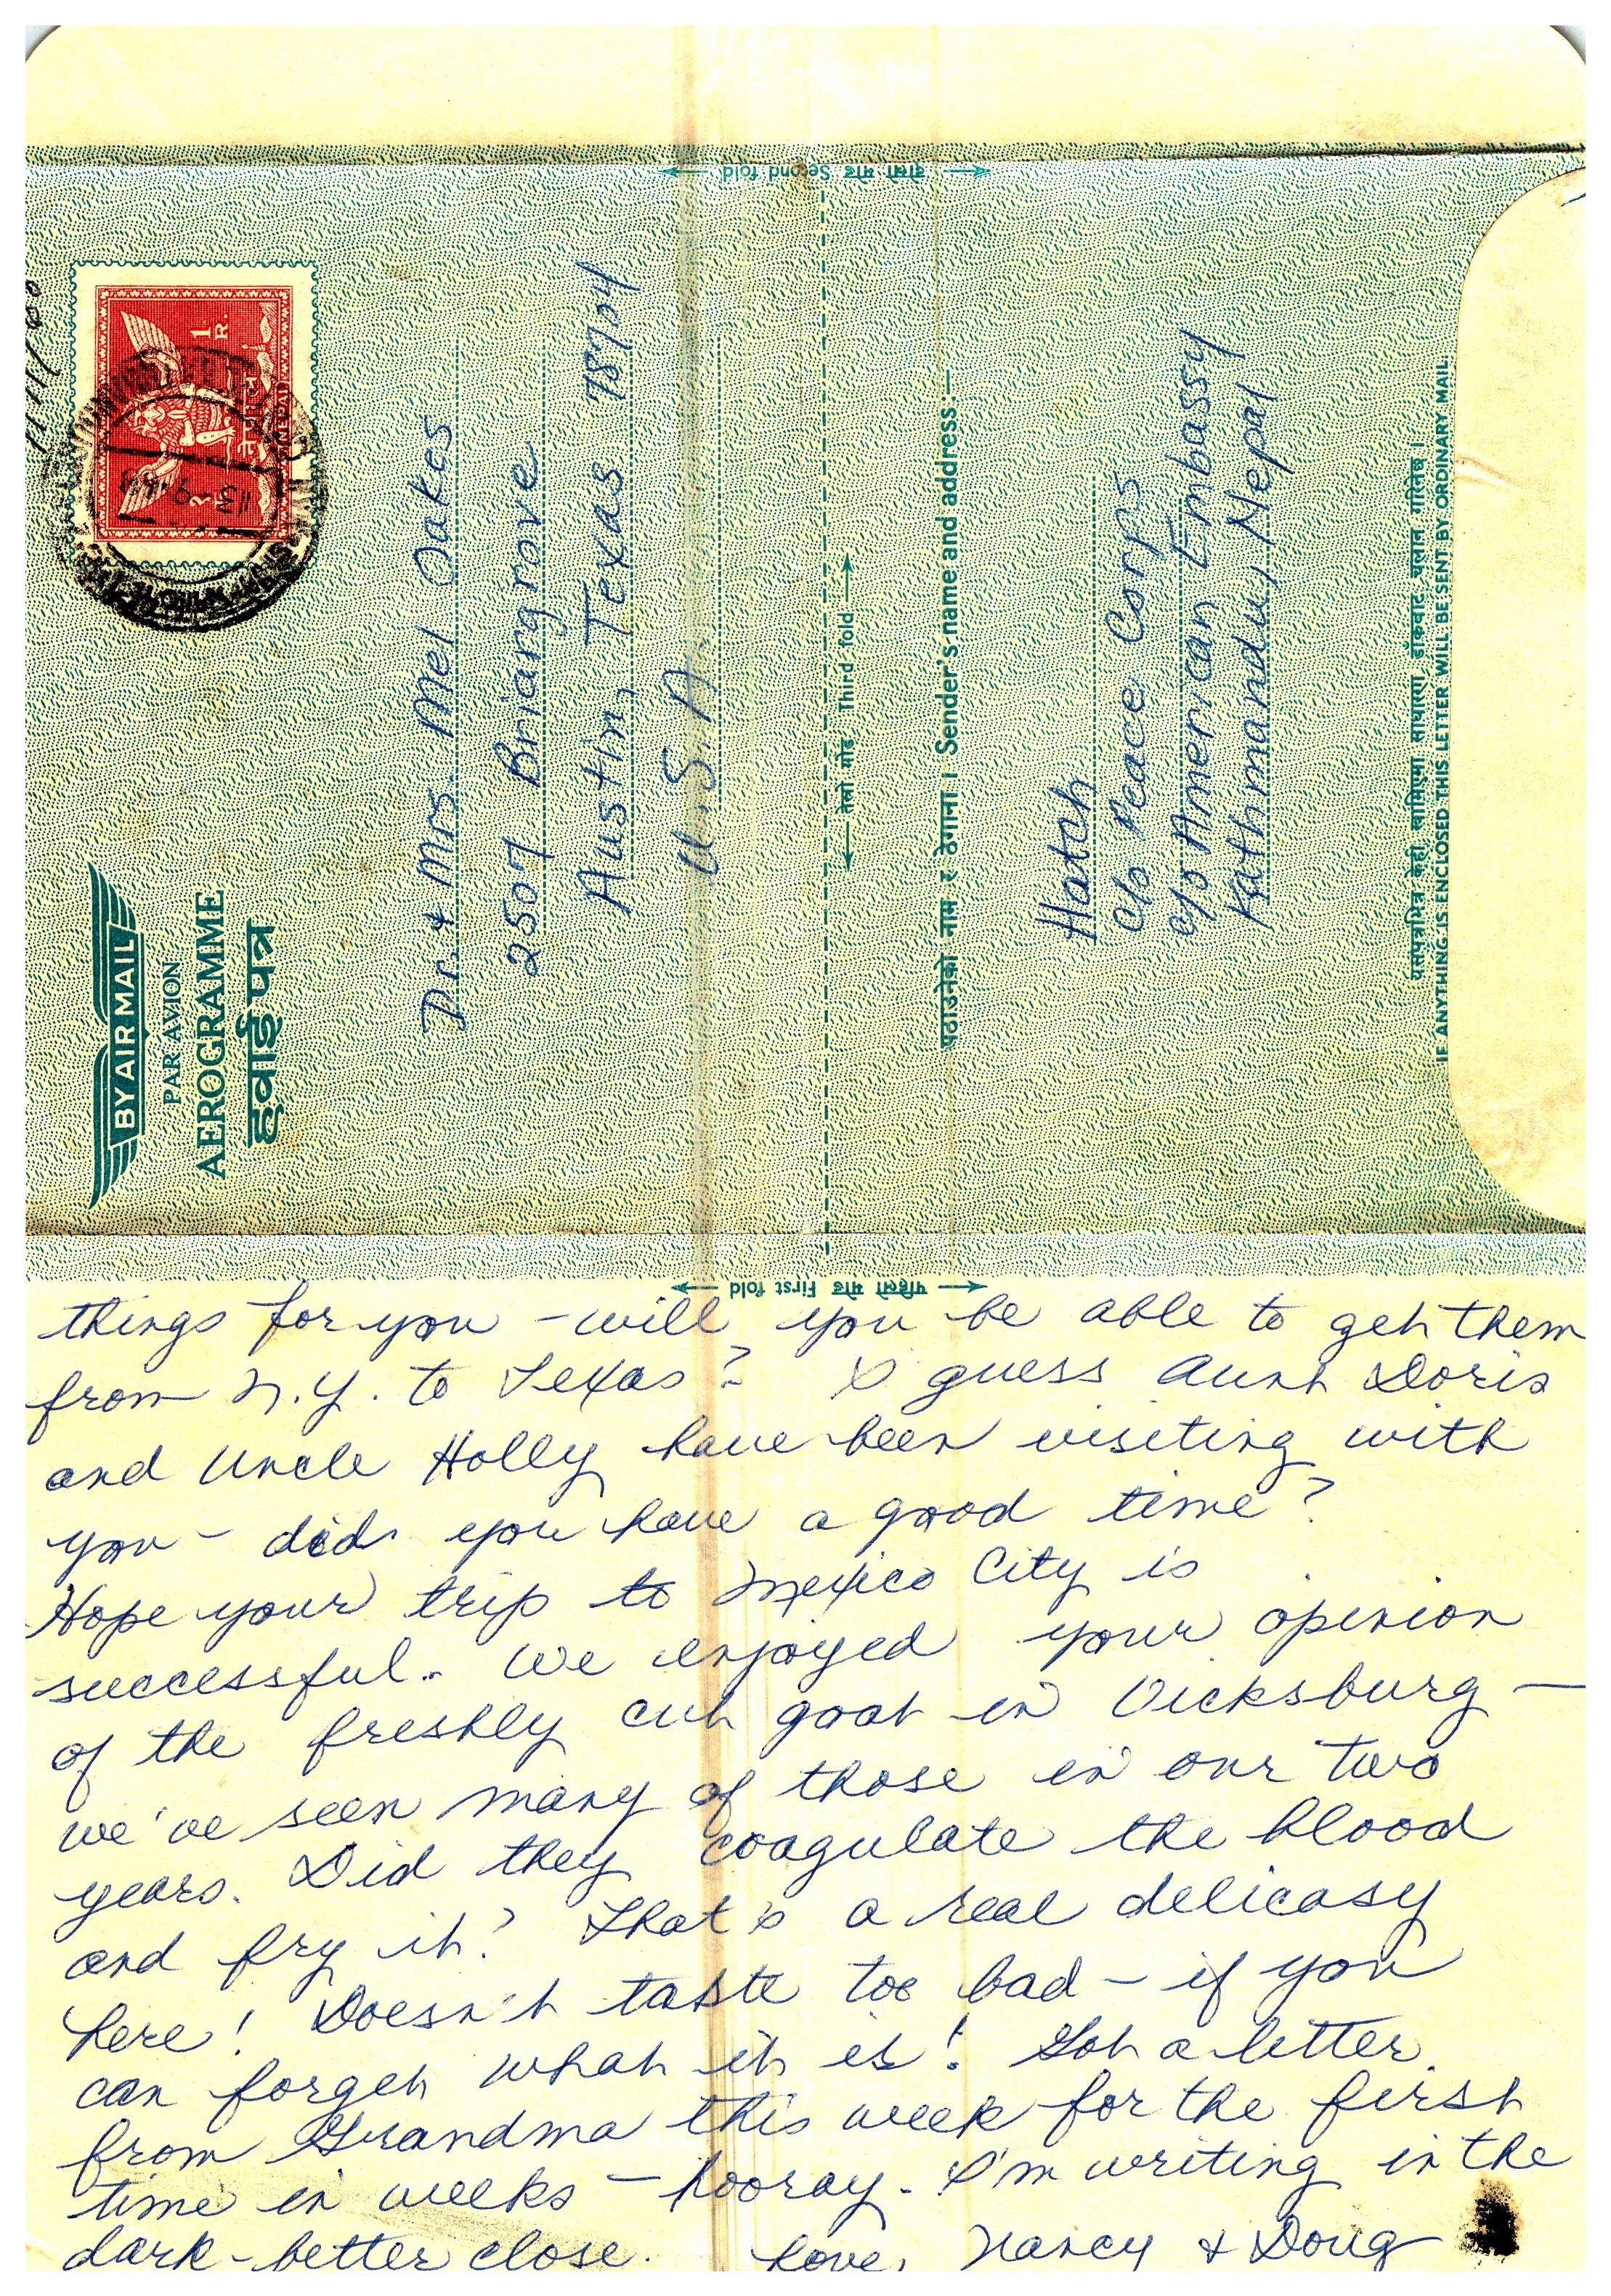 दोस्रो मोड Second fold
BY AIR MAIL
PAR AVION
AEROGRAMME
हवाई पत्र
नेपाल
NEPAL
1 R.
13-9-68
Dr. & Mrs. Mel Oakes
2507 Briargrove
Austin, Texas 78704
U.S.A.
तेस्रो मोड Third fold
पठाउनेको नाम र ठेगाना । Sender's name and address:—
Hatch
c/o Peace Corps
c/o American Embassy
Kathmandu, Nepal
यसपत्रभित्र केही खामिएमा साधारण डाँकबाट चलान गरिनेछ ।
IF ANYTHING IS ENCLOSED THIS LETTER WILL BE SENT BY ORDINARY MAIL.
पहिलो मोड First fold
things for you – will you be able to get them
from N.Y. to Texas? I guess Aunt Doris
and Uncle Holly have been visiting with
you – did you have a good time?
Hope your trip to Mexico City is
successful. We enjoyed your opinion
of the freshly cut goat in Vicksburg –
we've seen many of those in our two
years. Did they coagulate the blood
and fry it? That's a real delicasy
here! Doesn't taste too bad – if you
can forget what it is! Got a letter
from Grandma this week for the first
time in weeks – hooray. I'm writing in the
dark – better close. Love, Nancy & Doug